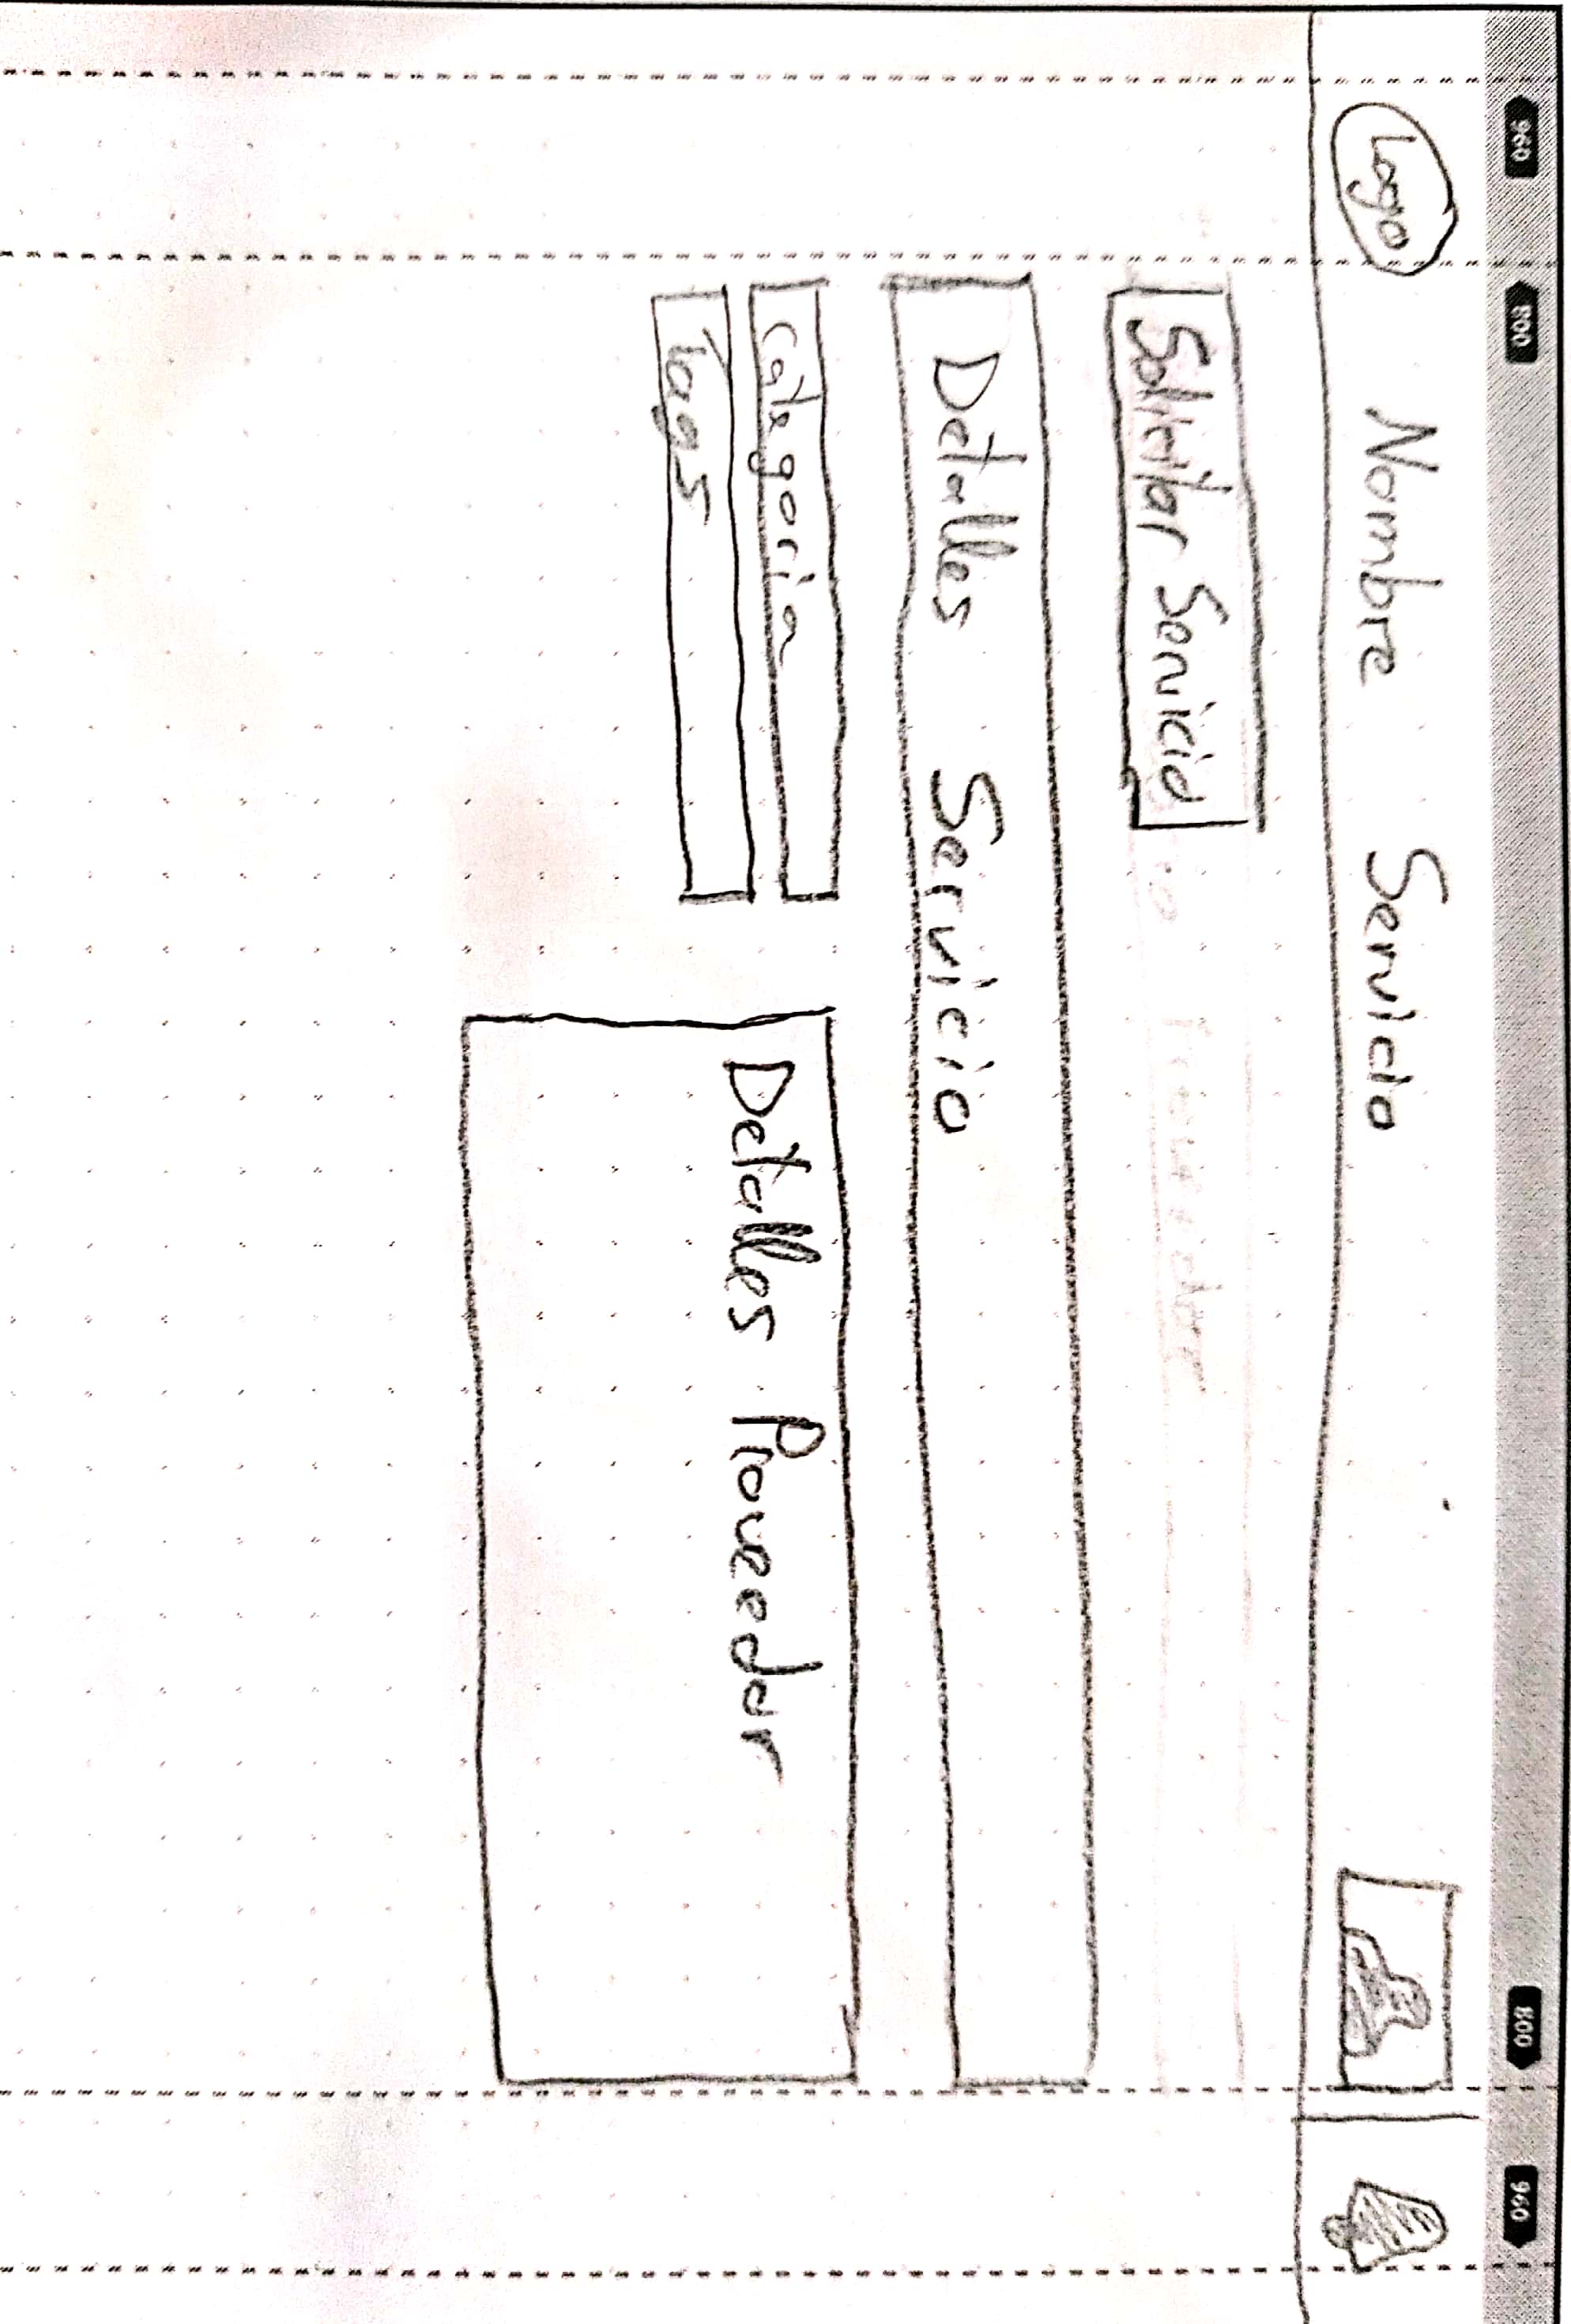 960
800
800
960
Logo
Nombre Servicio
Solicitar Servicio
Detalles Servicio
Categoria
Tags
Detalles Proveedor